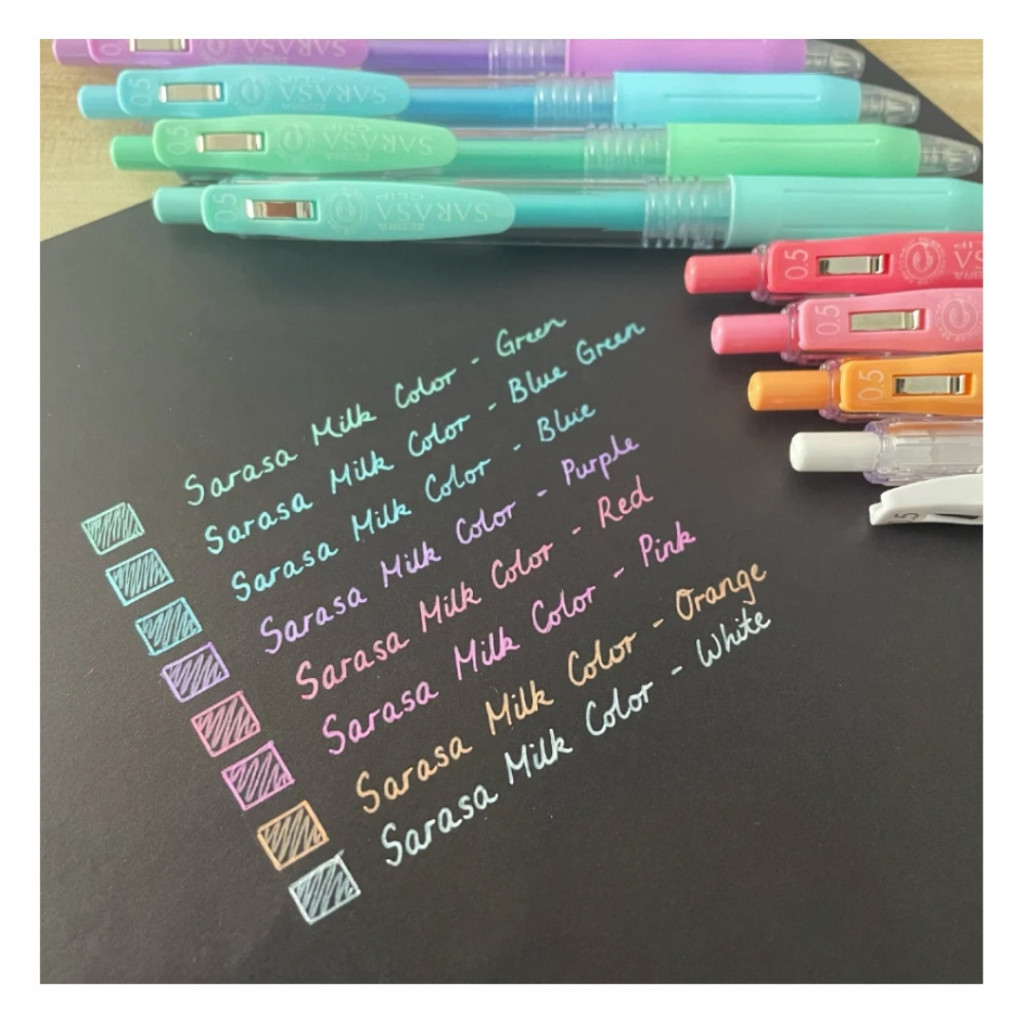 SARASA
0.5
SARASA
CLIP
0.5
ZEBRA
SARASA
CLIP
0.5
ZEBRA
SARASA
CLIP
0.5
ZEBRA
SA
0.5
0.5
0.5
Sarasa Milk Color - Green
Sarasa Milk Color - Blue Green
Sarasa Milk Color - Blue
Sarasa Milk Color - Purple
Sarasa Milk Color - Red
Sarasa Milk Color - Pink
Sarasa Milk Color - Orange
Sarasa Milk Color - White